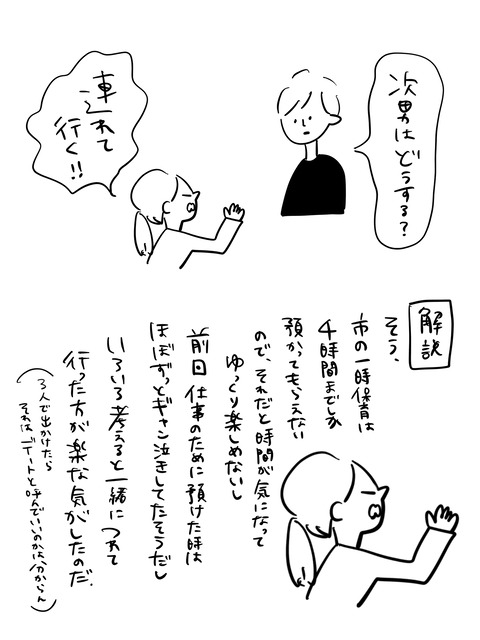 次男はどうする?
連れて
行く!!
解説
そう、
市の一時保育は
4時間までしか
預かってもらえない
ので、それだと時間が気になって
ゆっくり楽しめないし
前回仕事のために預けた時は
ほぼずっとギャン泣きしてたそうだし
いろいろ考えると一緒につれて
行った方が楽な気がしたのだ.
(3人で出かけたら
それはデートと呼んでいいのかは分からん)